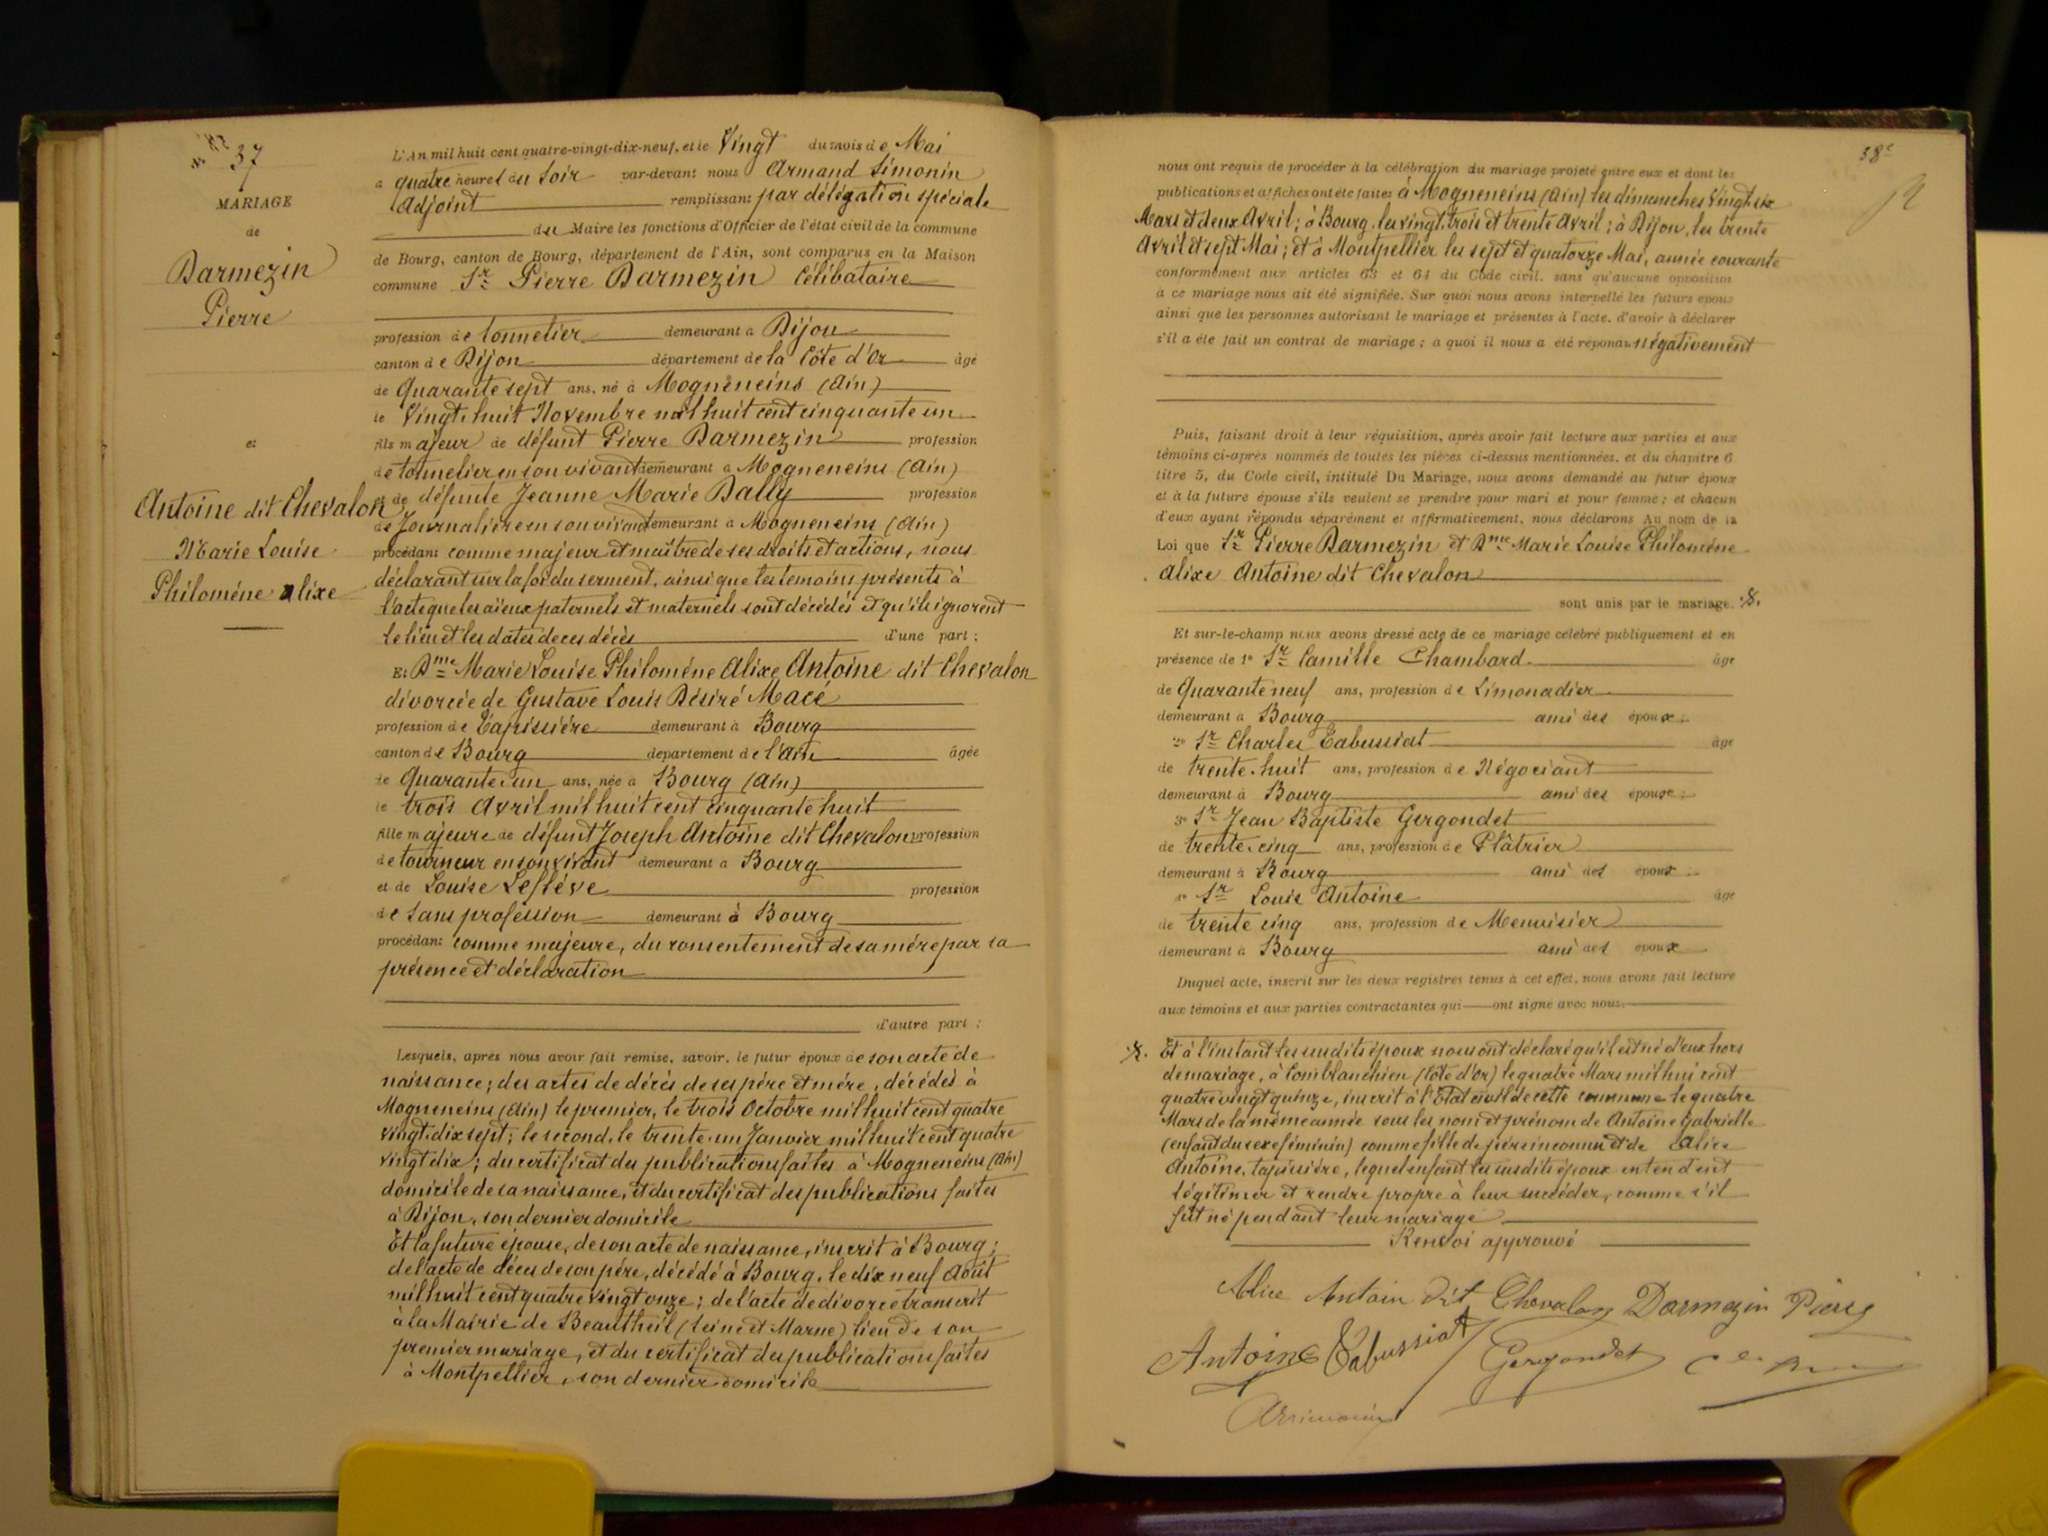 37
MARIAGE
de
Darmezin
Pierre
et
Antoine dit Chevalon
Marie Louise
Philoméne Alixe
L'An mil huit cent quatre-vingt-dix-neuf, et le Vingt du mois de Mai
à quatre heures du Soir par-devant nous Armand Simonin
Adjoint remplissant par délégation spéciale
du Maire les fonctions d'Officier de l'état civil de la commune
de Bourg, canton de Bourg, département de l'Ain, sont comparus en la Maison
commune Sr Pierre Darmezin Célibataire
profession de tonnelier demeurant à Dijon
canton de Dijon département de la Côte d'Or âgé
de Quarante sept ans, né à Mogneneins (Ain)
le Vingt huit Novembre mil huit cent cinquante un
fils majeur de défunt Pierre Darmezin profession
de tonnelier en son vivant demeurant à Mogneneins (Ain)
et de défunte Jeanne Marie Dally profession
de Journalière en son vivant demeurant à Mogneneins (Ain)
procédant comme majeur et maître de ses droits et actions, nous
déclarant sur la foi du serment, ainsi que les témoins présents à
l'acte que les aïeux paternels et maternels sont décédés et qu'ils ignorent
le lieu et les dates de ces décès d'une part ;
Et Dme Marie Louise Philoméne Alixe Antoine dit Chevalon
divorcée de Gustave Louis Désiré Macé
profession de Tapissière demeurant à Bourg
canton de Bourg département de l'Ain âgée
de Quarante un ans, née à Bourg (Ain)
le trois Avril mil huit cent cinquante huit
fille majeure de défunt Joseph Antoine dit Chevalon profession
de tourneur en son vivant demeurant à Bourg
et de Louise Leflève profession
de sans profession demeurant à Bourg
procédant comme majeure, du consentement de sa mère par sa
présence et déclaration
d'autre part ;
Lesquels, après nous avoir fait remise, savoir, le futur époux de son acte de
naissance ; des actes de décès de ses père et mère, décédés à
Mogneneins (Ain) le premier, le trois Octobre mil huit cent quatre
vingt dix sept ; le second, le trente un Janvier mil huit cent quatre
vingt dix ; du certificat des publications faites à Mogneneins (Ain)
domicile de sa naissance, et du certificat des publications faites
à Dijon, son dernier domicile
Et la future épouse, de son acte de naissance, inscrit à Bourg ;
de l'acte de décès de son père, décédé à Bourg, le dix neuf Août
mil huit cent quatre vingt onze ; de l'acte de divorce transcrit
à la Mairie de Beautheil (Seine et Marne) lieu de son
premier mariage, et du certificat des publications faites
à Montpellier, son dernier domicile
38e
nous ont requis de procéder à la célébration du mariage projeté entre eux et dont les
publications et affiches ont été faites à Mogneneins (Ain) les dimanches Vingt six
Mars et deux Avril ; à Bourg, les vingt trois et trente Avril ; à Dijon, les trente
Avril et sept Mai ; et à Montpellier les sept et quatorze Mai, année courante
conformément aux articles 63 et 64 du Code civil, sans qu'aucune opposition
à ce mariage nous ait été signifiée. Sur quoi nous avons interpellé les futurs époux
ainsi que les personnes autorisant le mariage et présentes à l'acte, d'avoir à déclarer
s'il a été fait un contrat de mariage ; à quoi il nous a été répondu négativement
Puis, faisant droit à leur réquisition, après avoir fait lecture aux parties et aux
témoins ci-après nommés de toutes les pièces ci-dessus mentionnées, et du chapitre 6
titre 5, du Code civil, intitulé Du Mariage, nous avons demandé au futur époux
et à la future épouse s'ils veulent se prendre pour mari et pour femme ; et chacun
d'eux ayant répondu séparément et affirmativement, nous déclarons Au nom de la
Loi que Sr Pierre Darmezin et Dme Marie Louise Philoméne
Alixe Antoine dit Chevalon
sont unis par le mariage.
Et sur-le-champ nous avons dressé acte de ce mariage célébré publiquement et en
présence de 1° Sr Camille Chambard âgé
de Quarante neuf ans, profession de Limonadier
demeurant à Bourg ami des époux ;
2° Sr Charles Tabussiat âgé
de trente huit ans, profession de Négociant
demeurant à Bourg ami des époux ;
3° Sr Jean Baptiste Gergondet
de trente cinq ans, profession de Plâtrier
demeurant à Bourg ami des époux ;
4° Sr Louis Antoine âgé
de trente cinq ans, profession de Menuisier
demeurant à Bourg ami des époux
Duquel acte, inscrit sur les deux registres tenus à cet effet, nous avons fait lecture
aux témoins et aux parties contractantes qui ont signé avec nous.
Et à l'instant les susdits époux nous ont déclaré qu'il est né d'eux hors
de mariage, à Comblanchien (Côte d'Or) le quatre Mars mil hui cent
quatre vingt quinze, inscrit à l'Etat civil de cette commune le quatre
Mars de la même année sous les nom et prénom de Antoine Gabrielle
(enfant du sexe féminin) comme fille de père inconnu et de Alice
Antoine, tapissière, lequel enfant les susdits époux entendent
légitimer et rendre propre à leur succéder, comme s'il
fut né pendant leur mariage
Renvoi approuvé
Alice Antoin dit Chevalon Darmezin Pierre
Antoine Tabussiat Gergondet